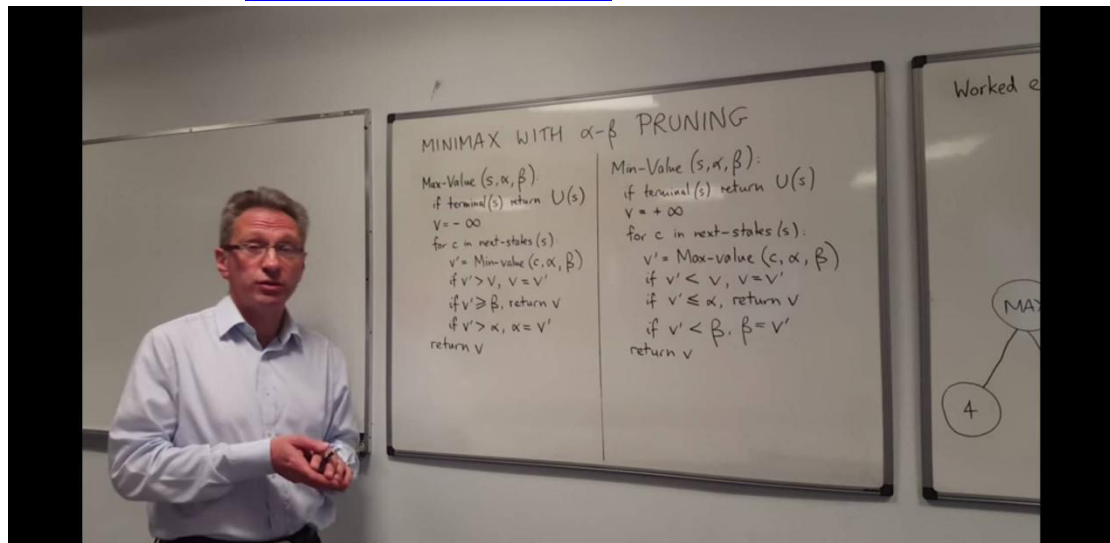 MINIMAX WITH α-β PRUNING
Max-Value (s, α, β):
if terminal(s) return U(s)
v = - ∞
for c in next-states (s):
v' = Min-value (c, α, β)
if v' > v, v = v'
if v' ≥ β, return v
if v' > α, α = v'
return v
Min-Value (s, α, β):
if terminal(s) return U(s)
v = + ∞
for c in next-states (s):
v' = Max-value (c, α, β)
if v' < v, v = v'
if v' ≤ α, return v
if v' < β, β = v'
return v
Worked e
MAX
4